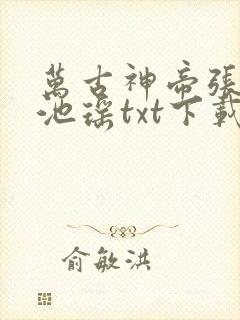 萬古神帝張
池瑤txt下載
俞敏洪